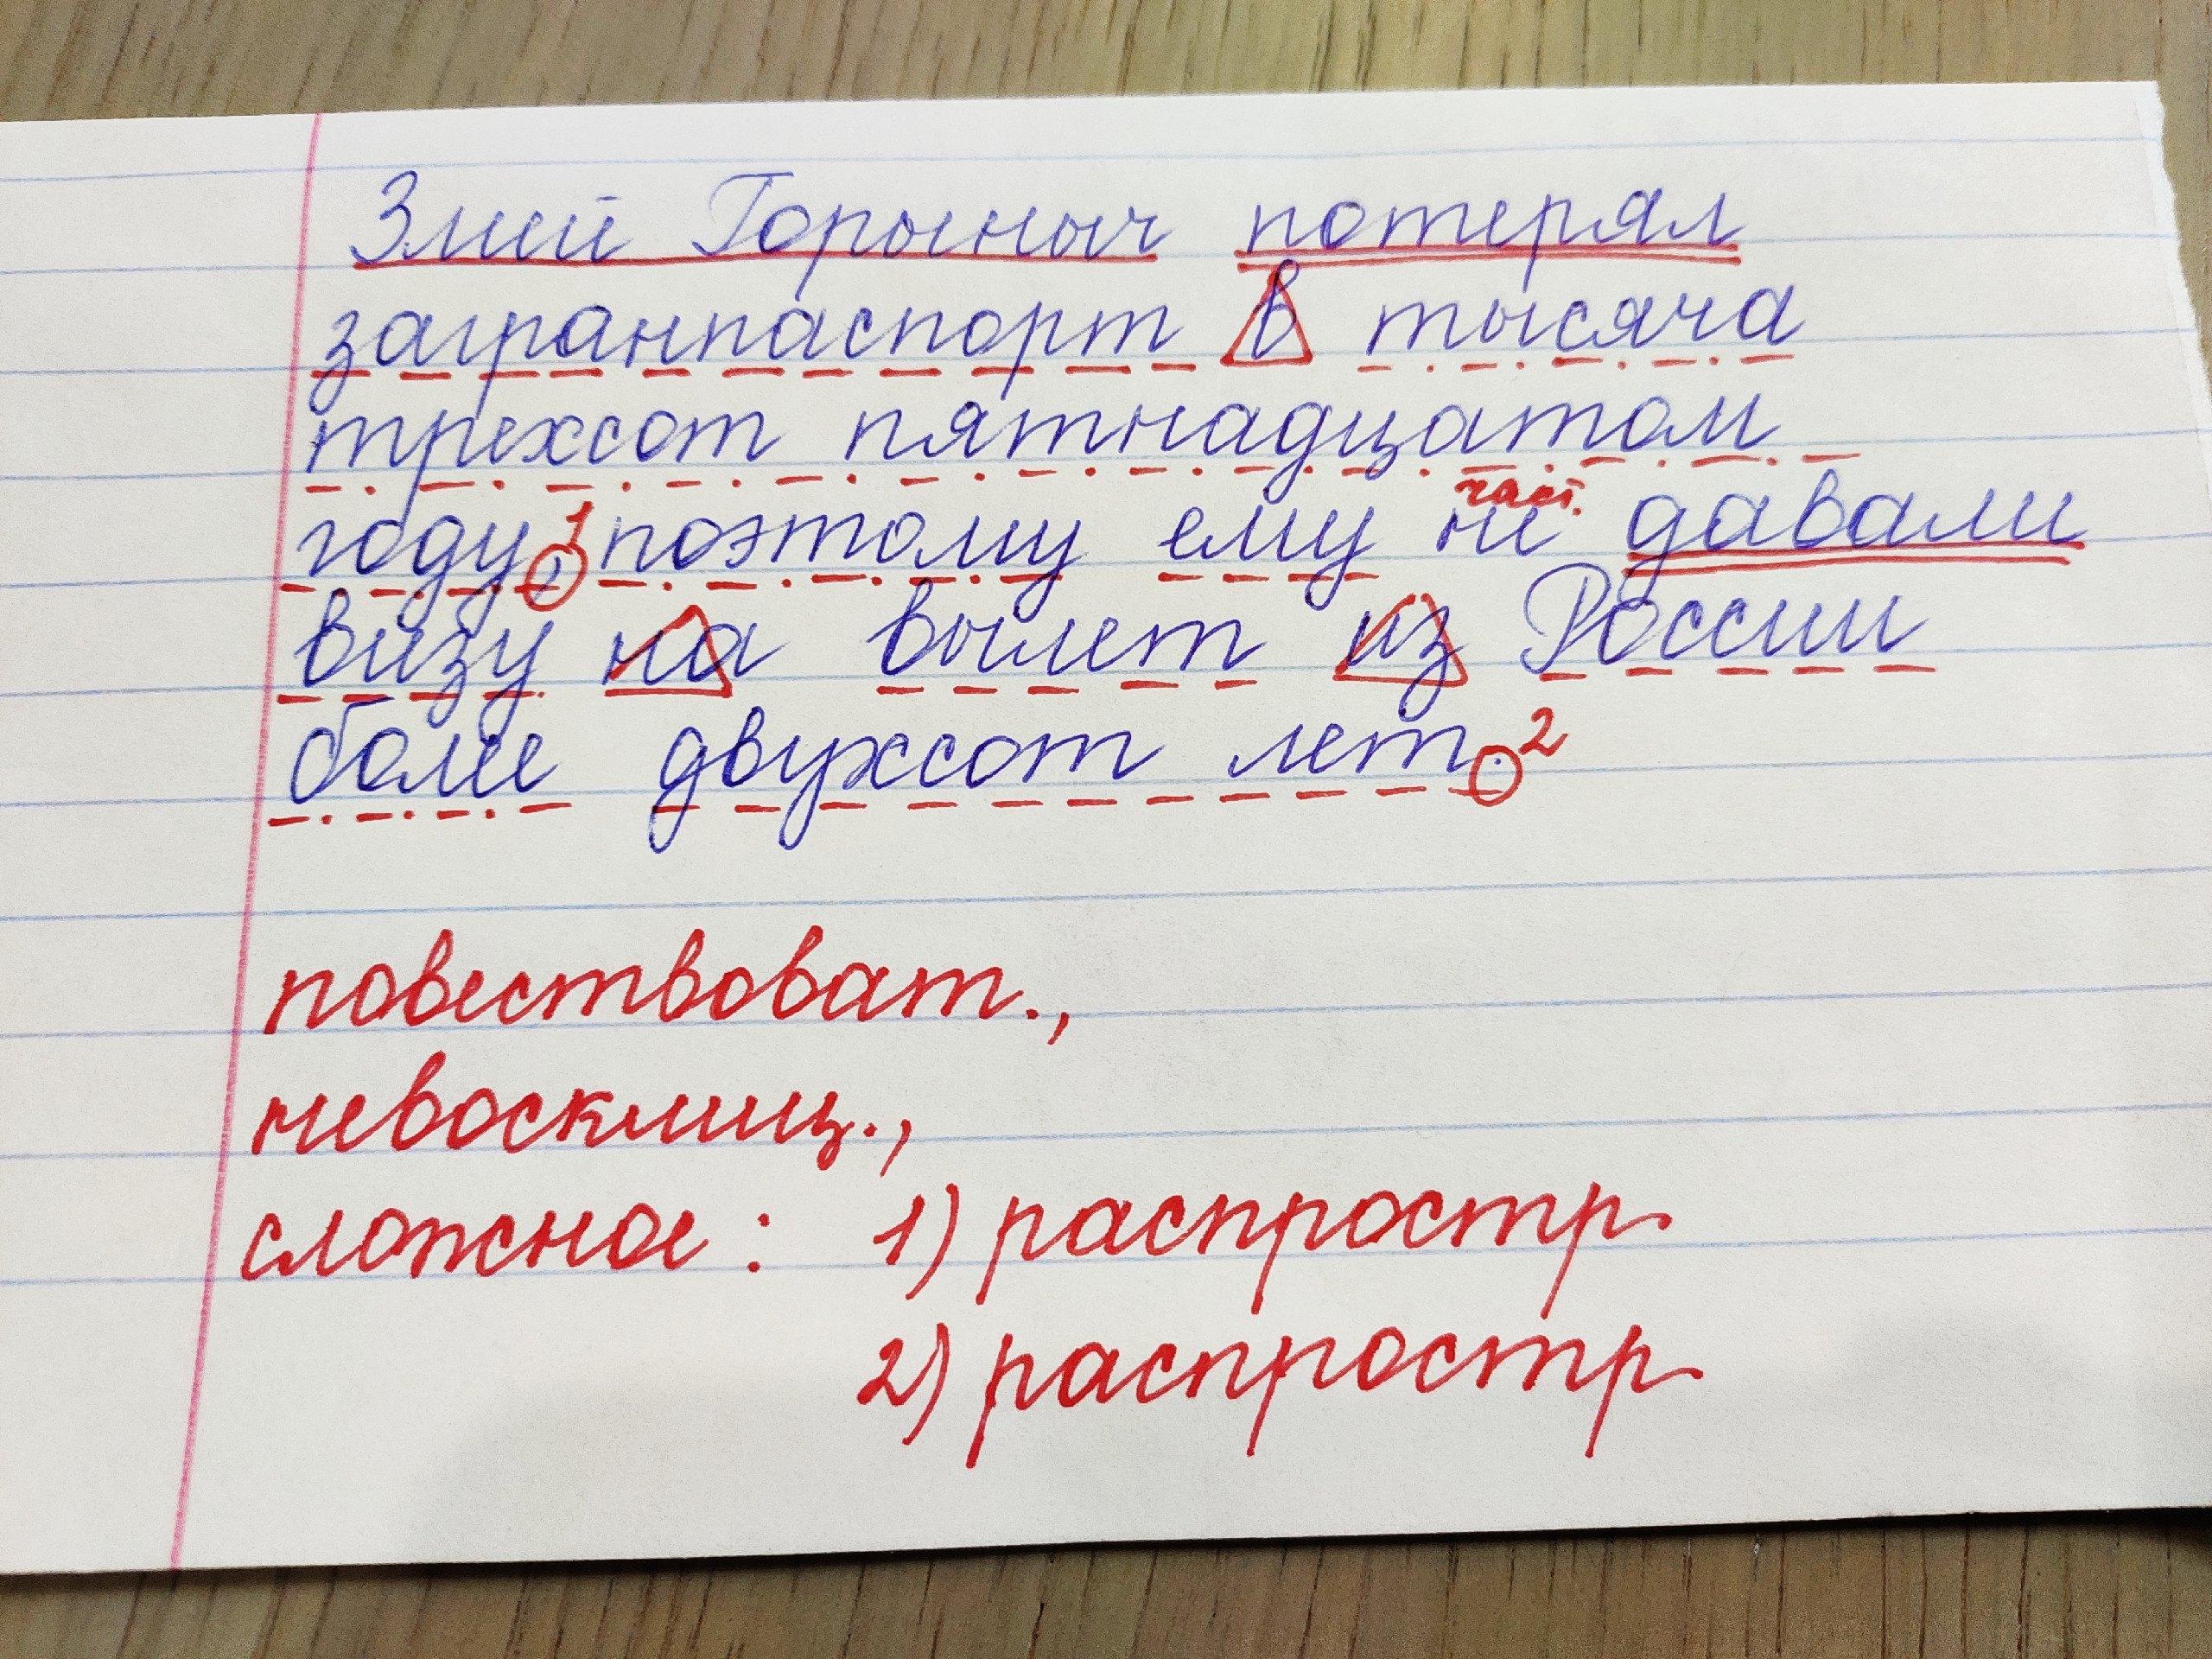 Змей Горыныч потерял
загранпаспорт в тысяча
трехсот пятнадцатом
году,¹ поэтому ему не част. давали
визу на вылет из России
более двухсот лет.²
повествоват.,
невосклиц.,
сложное: 1) распростр.
2) распростр.